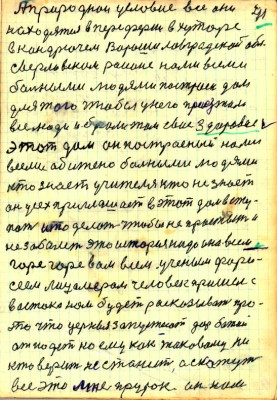 А природной условие все они 521
находятся в переферии в хуторе
в кондрочем Ворошиловградской обл.
Сверловском районе нами всеми
больными людями построен дом
для того чтобы у него проезжали
все люди и брали там свое здоровье
этот дом он построеный нами
всеми обижено больными людями
кто знает учителя кто не знает
он усех приглашает в этот дом
пот што делать чтобы не простывать и
не заболеть это история надо она всем
горе горе вам всем ученым фари-
сеем лицамерам человек пришел с
востока нам будет расказывать про-
это что церква запустеет дар божий
отпадет но ему как таковому ни
кто верит не станит, а скажут
все это мне пророк он нам